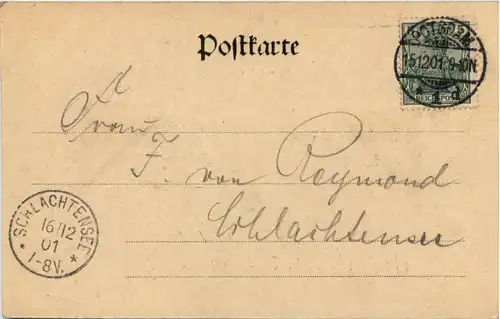 Postkarte
POTSDAM
15.12.01. 9-10N.
* 1 d
REICHSPOST
Frau
F. von Reymond
Schlachtensee
* SCHLACHTENSEE *
16/12
01
1-8V.